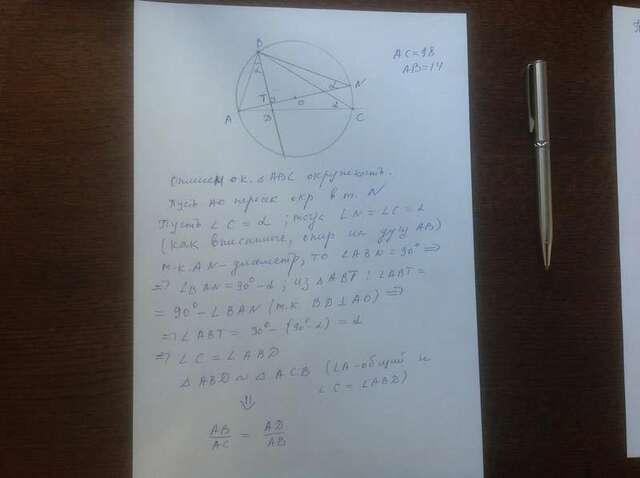 B
AC=98
AB=14
α
N
α
T
O
α
A
D
C
Опишем ок. △ABC окружность.
Пусть AO пересек окр в т. N
Пусть ∠C = α ; тогда ∠N = ∠C = α
(как вписанные, опир на дугу AB)
т.к. AN - диаметр, то ∠ABN = 90° ⇒
⇒ ∠BAN = 90° - α ; из △ABT : ∠ABT =
= 90° - ∠BAN (т.к BD⊥AO) ⇒
⇒ ∠ABT = 90° - (90° - α) = α
⇒ ∠C = ∠ABD
△ABD ~ △ACB (∠A - общий и
∠C = ∠ABD)
⇓
AB/AC = AD/AB